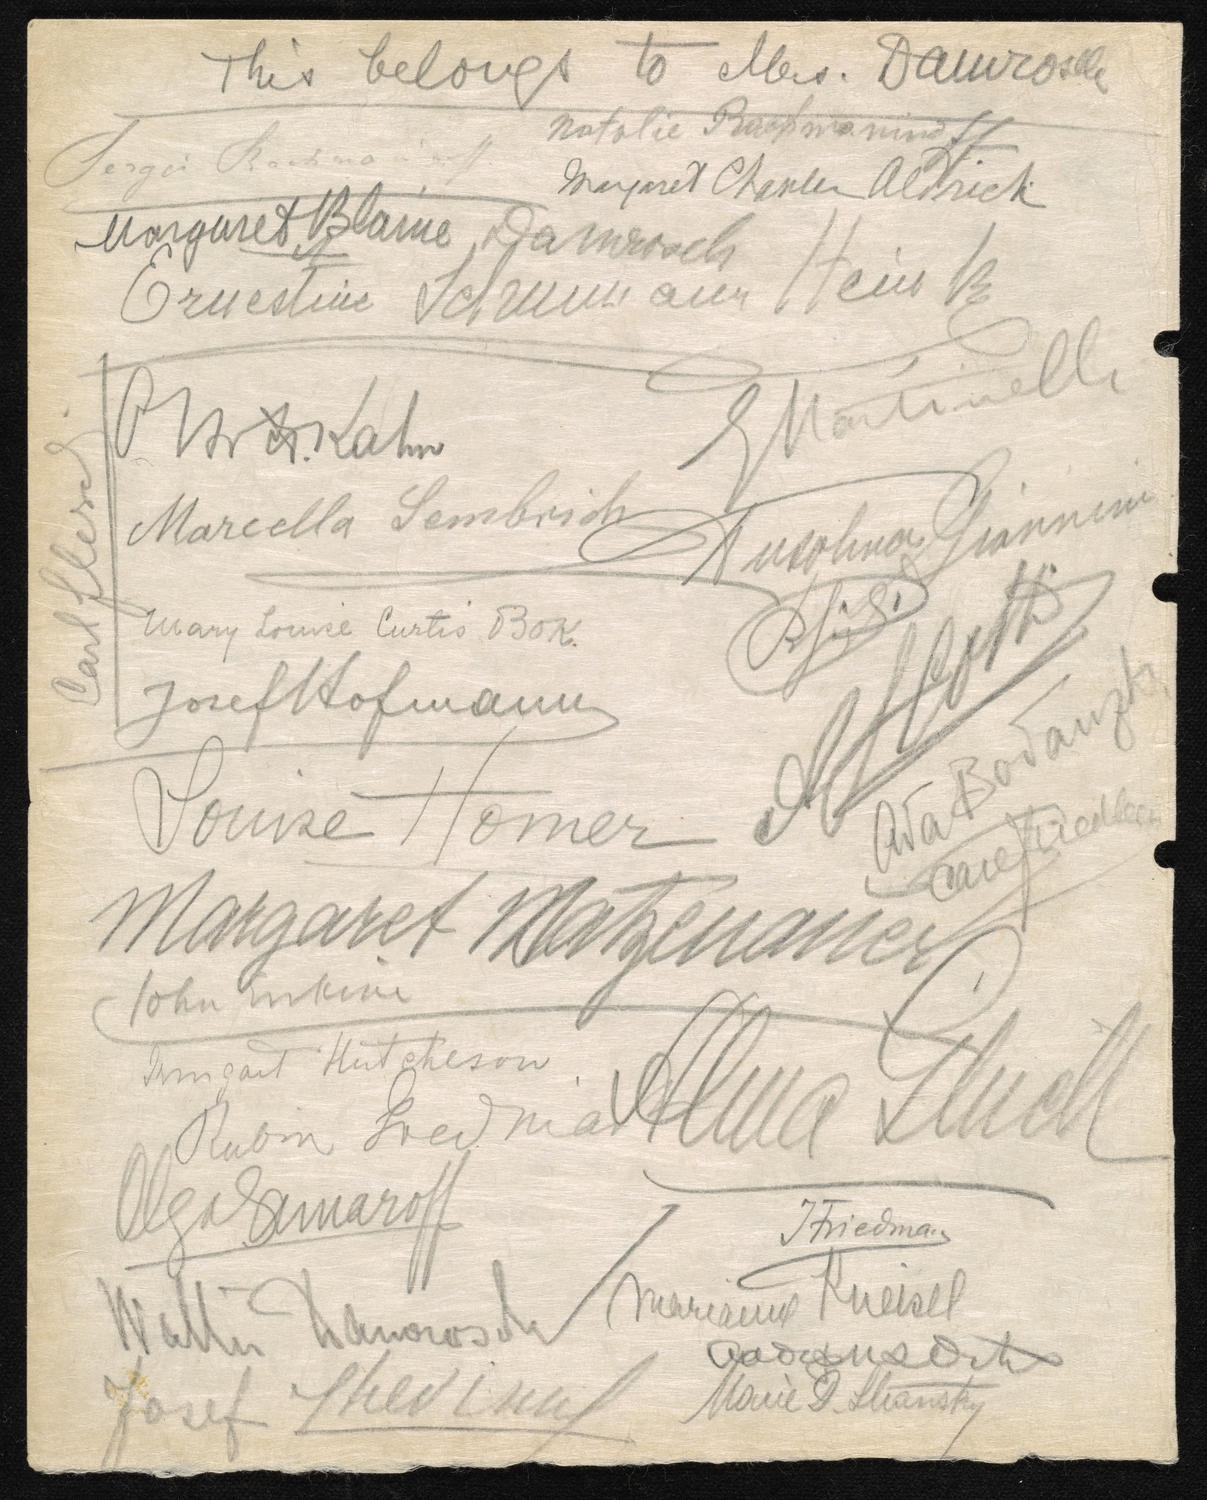 This belongs to Mrs. Damrosch
Natalie Rachmaninoff
Sergei Rachmaninoff
Margaret Chanler Aldrich
Margaret Blaine Damrosch
Ernestine Schumann Heink
G Martinelli
Otto H. Kahn
Carl Flesch
Marcella Sembrich
Dusolina Giannini
Mary Louise Curtis Bok.
Josef Hofmann
A Scotti
Ada Bodanzky
Louise Homer
Carl Friedberg
Margaret Matzenauer
John Erskine
Irmgart Hutcheson
Alma Gluck
Rubin Goldmark
Olga Samaroff
I Friedman
Walter Damrosch
Marianne Kneisel
Josef Lhevinne
Marie D. Shansky